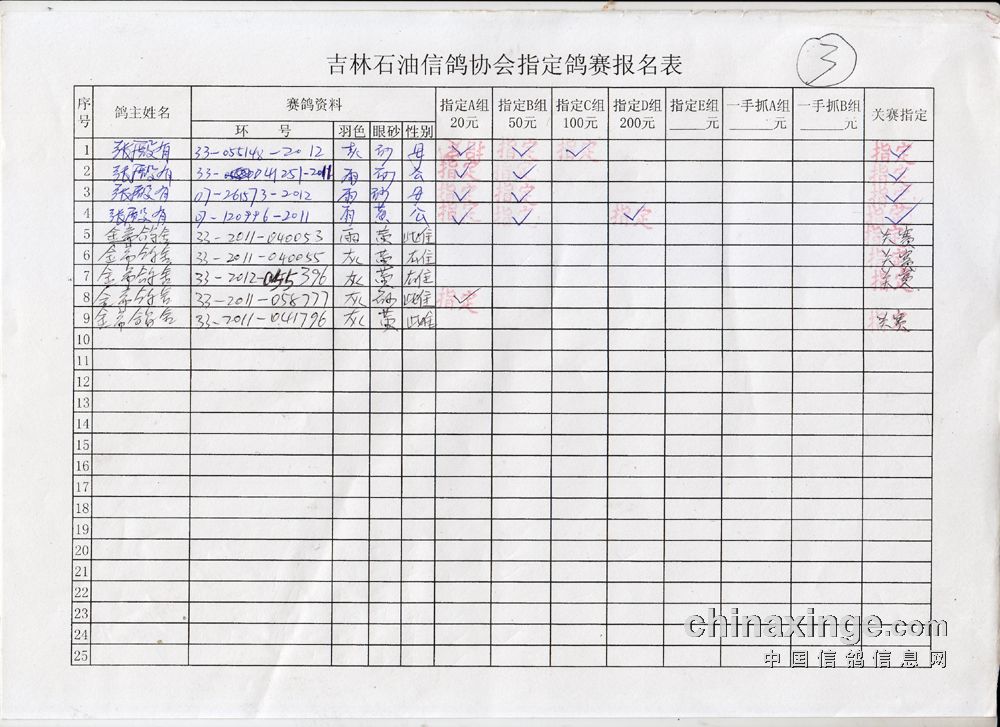 3
吉林石油信鸽协会指定鸽赛报名表
序号 鸽主姓名 赛鸽资料 指定A组 20元 指定B组 50元 指定C组 100元 指定D组 200元 指定E组 ____元 一手抓A组 ____元 一手抓B组 ____元 关赛指定
环 号 羽色 眼砂 性别
1 张殿有 33-055148-2012 灰 砂 母 指定 指定 指定 指定
2 张殿有 33-041251-2011 雨 砂 公 指定 指定
3 张殿有 07-261573-2012 雨 砂 母 指定 指定 指定
4 张殿有 07-120996-2011 雨 黄 公 指定 指定 指定
5 33-2011-040053 雨 黄 雌 关赛
6 33-2011-040055 灰 黄 雄 关赛
7 33-2012-055396 灰 黄 雄 关赛
8 33-2011-058777 灰 砂 雌 指定
9 33-2011-041796 灰 黄 雌 关赛
10
11
12
13
14
15
16
17
18
19
20
21
22
23
24
25
chinaxinge.com
中国信鸽信息网